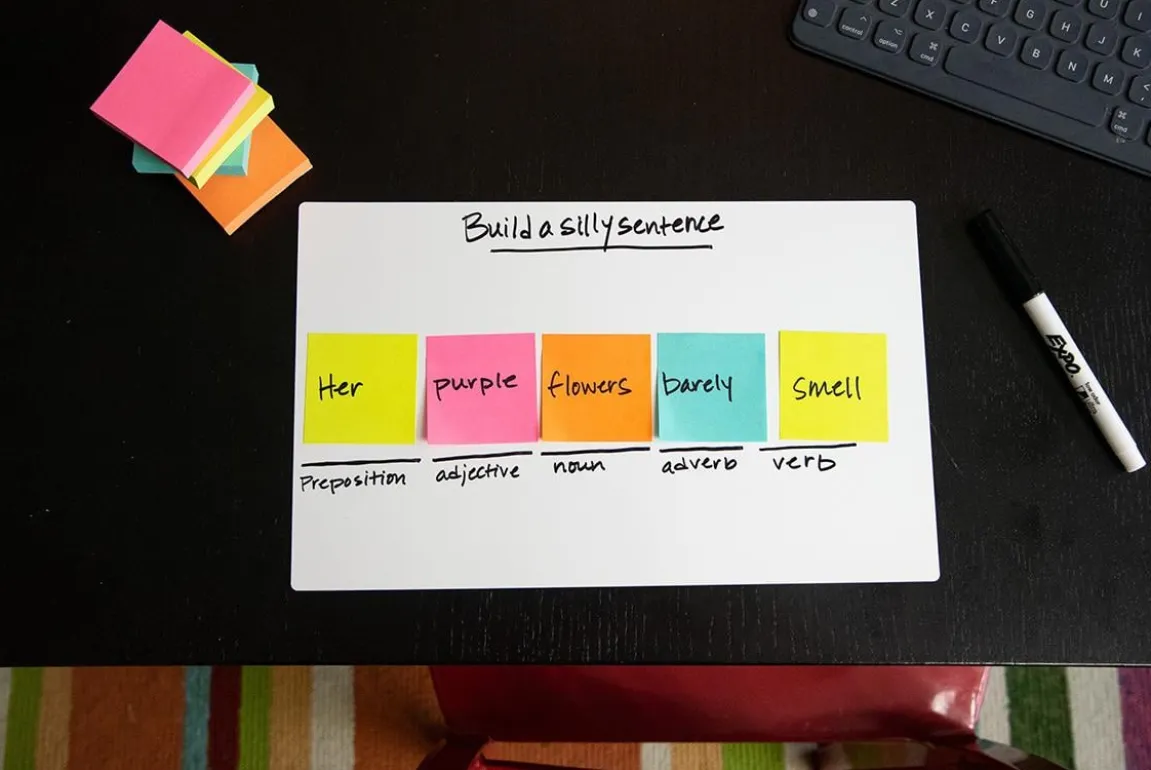 Build a silly sentence
Her purple flowers barely smell
Preposition adjective noun adverb verb
Z X C V B N M <
F G H J K U I
control option cmd
cmd
EXPO
low odor